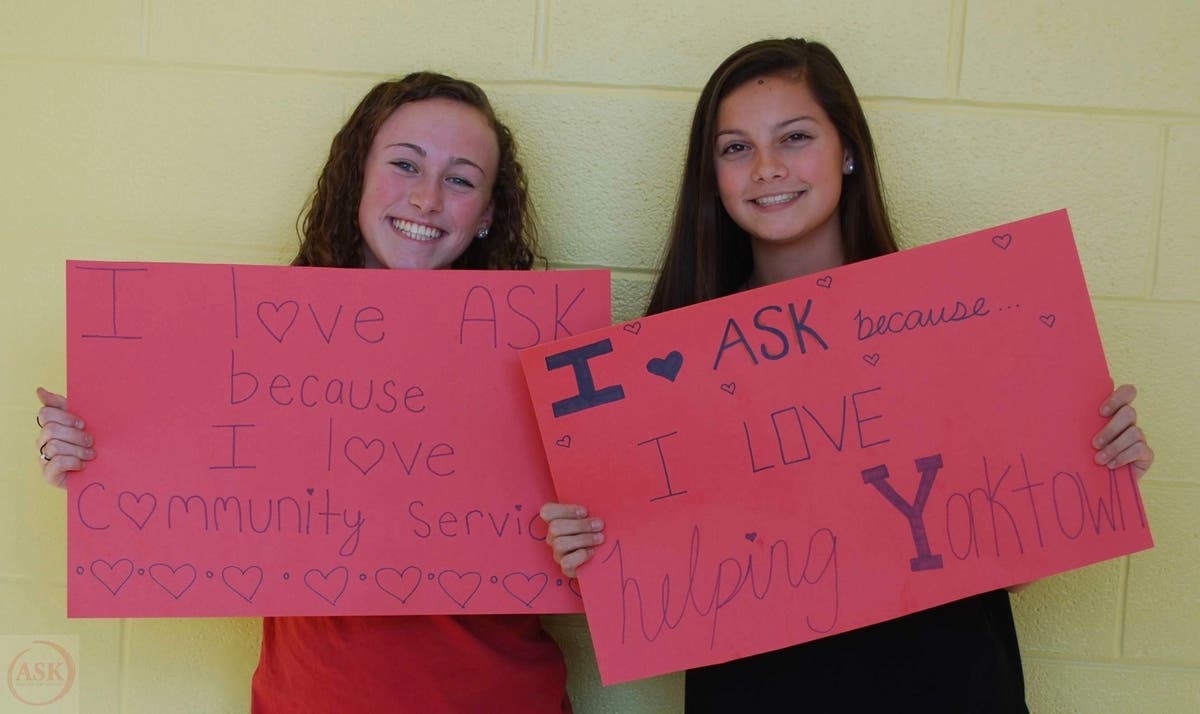 I love ASK
because
I love
Community Servic
I ♥ ASK because...
I LOVE
helping Yorktown
ASK